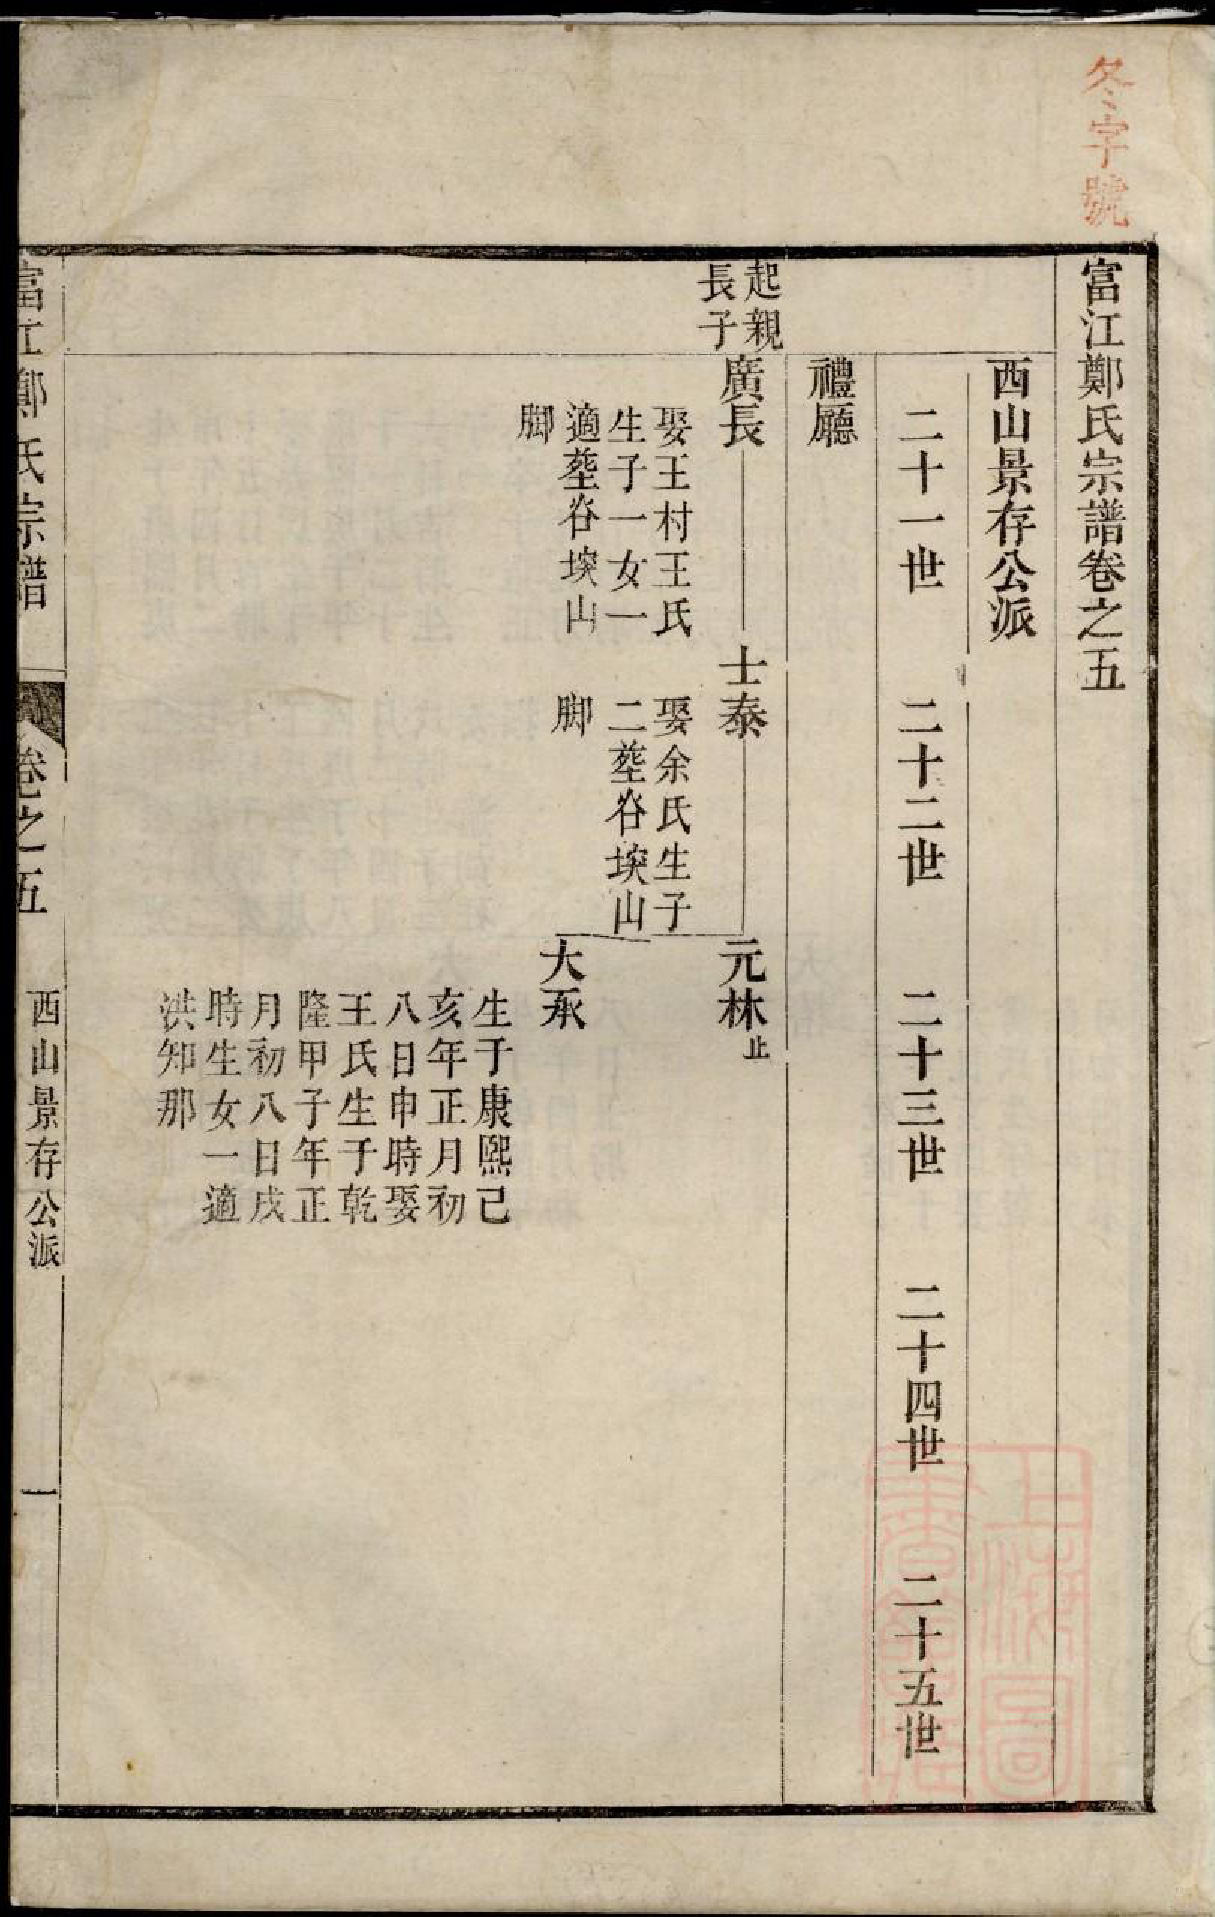 冬字號
富江鄭氏宗譜卷之五
西山景存公派
二十一世
二十二世
二十三世
二十四世
二十五世
禮廳
起親
長子
廣長
娶王村王氏
生子一女一
適塟谷堗山
脚
士泰
娶余氏生子
二塟谷堗山
脚
元林止
大承
生于康熙己
亥年正月初
八日申時娶
王氏生子乾
隆甲子年正
月初八日戌
時生女一適
洪知那
富江鄭氏宗譜
卷之五
西山景存公派
一
上海圖
書館藏